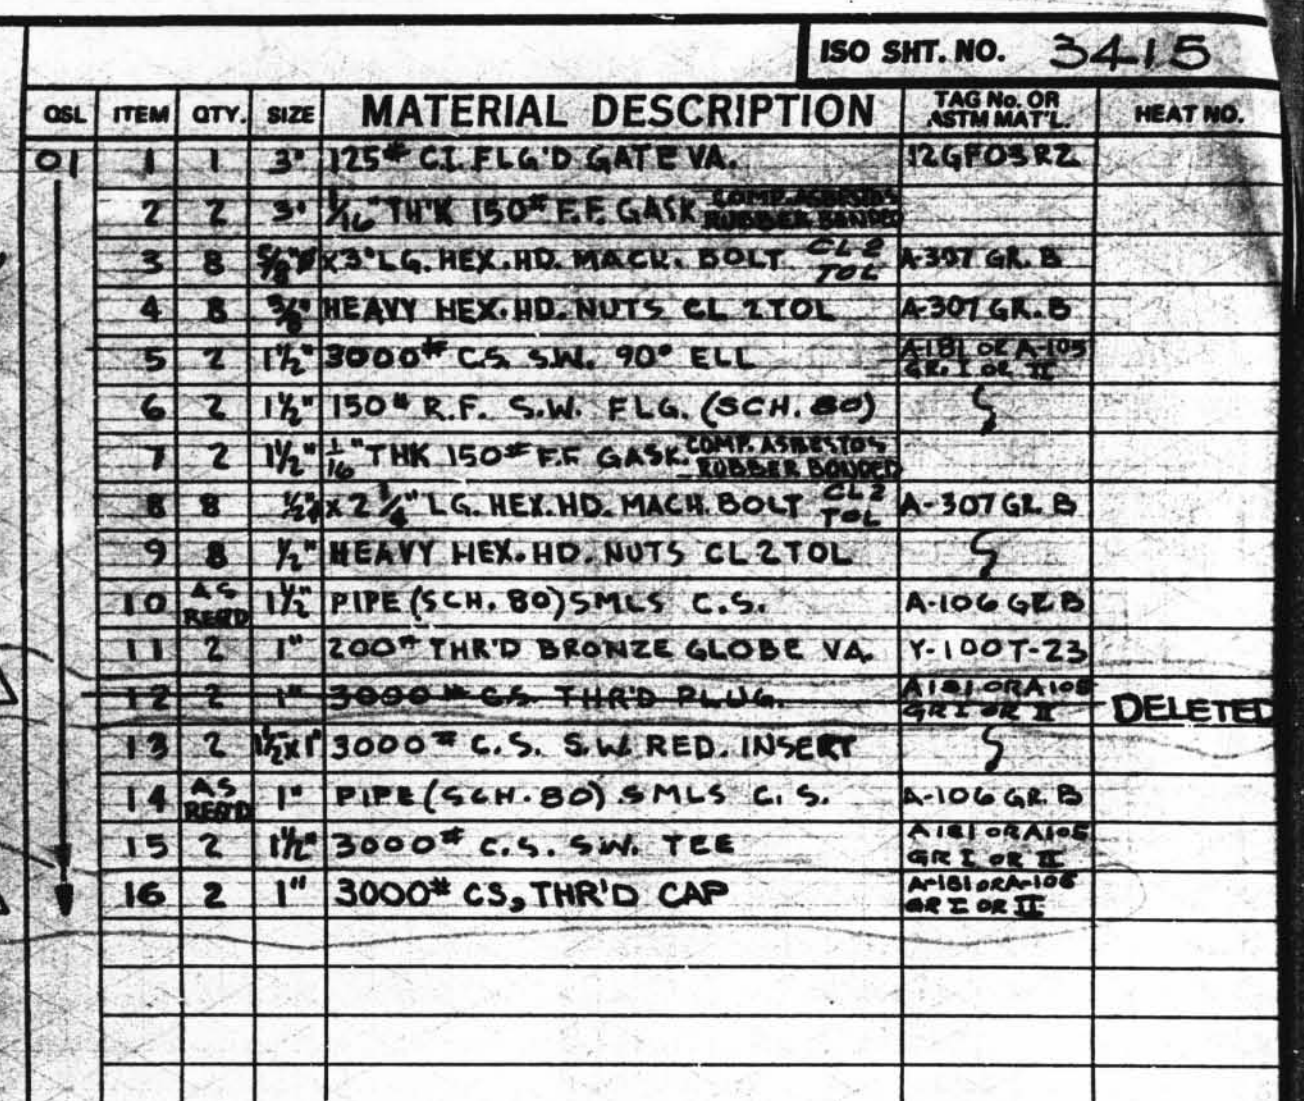 ISO SHT. NO. 3415
QSL ITEM QTY. SIZE MATERIAL DESCRIPTION TAG No. OR ASTM MAT'L. HEAT NO.
01 1 1 3" 125# C.I. FLG'D GATE VA. 12GF03R2
2 2 3" 1/16" TH'K 150# F.F. GASK COMP. ASBESTOS RUBBER BANDED
3 8 5/8"ø x 3" LG. HEX. HD. MACH. BOLT CL 2 TOL A-307 GR. B
4 8 5/8" HEAVY HEX. HD. NUTS CL 2 TOL A-307 GR. B
5 2 1½" 3000# C.S. S.W. 90° ELL A-181 OR A-105 GR. I OR II
6 2 1½" 150# R.F. S.W. FLG. (SCH. 80)
7 2 1½" 1/16" THK 150# F.F. GASK. COMP. ASBESTOS RUBBER BONDED
8 8 ½"ø x 2 ¼" LG. HEX. HD. MACH. BOLT CL 2 TOL A-307 GR. B
9 8 ½" HEAVY HEX. HD. NUTS CL 2 TOL
10 AS REQ'D 1½" PIPE (SCH. 80) SMLS C.S. A-106 GR B
11 2 1" 200# THR'D BRONZE GLOBE VA. Y-100T-23
12 2 1" 3000# C.S. THR'D PLUG. A181 OR A105 GR I OR II DELETED
13 2 1½x1" 3000# C.S. S.W. RED. INSERT
14 AS REQ'D 1" PIPE (SCH. 80) SMLS C.S. A-106 GR. B
15 2 1½" 3000# C.S. S.W. TEE A181 OR A105 GR I OR II
16 2 1" 3000# CS, THR'D CAP A-181 OR A-105 GR I OR II